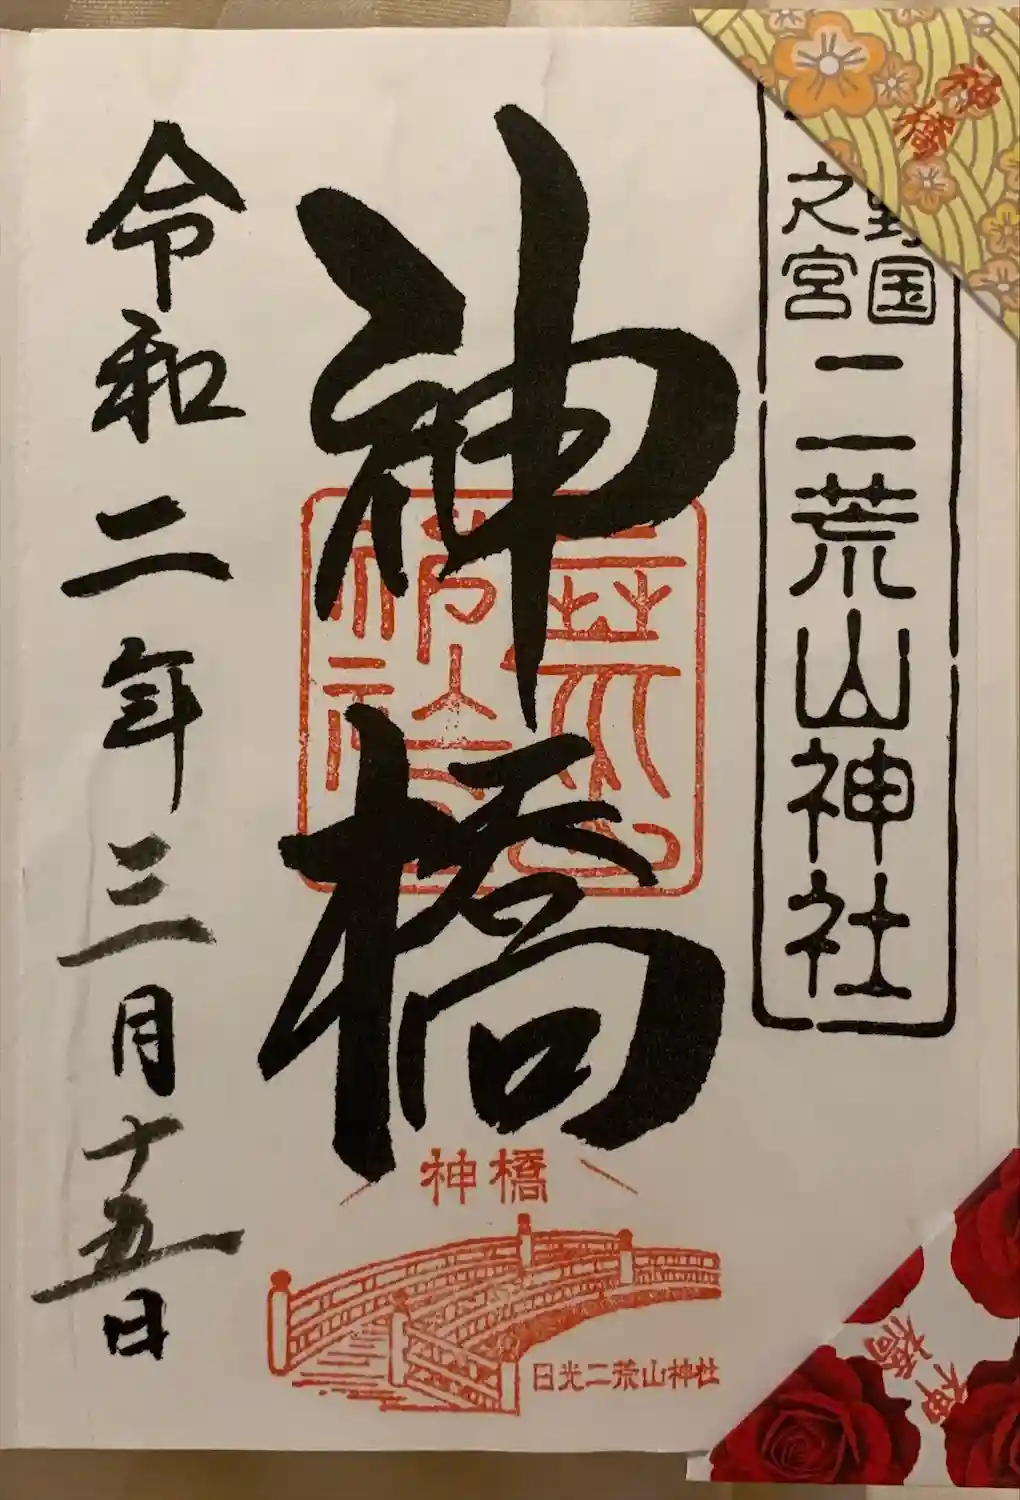 野国
之宮
二荒山神社
神橋
令和二年三月十五日
神橋
日光二荒山神社
神橋
神橋